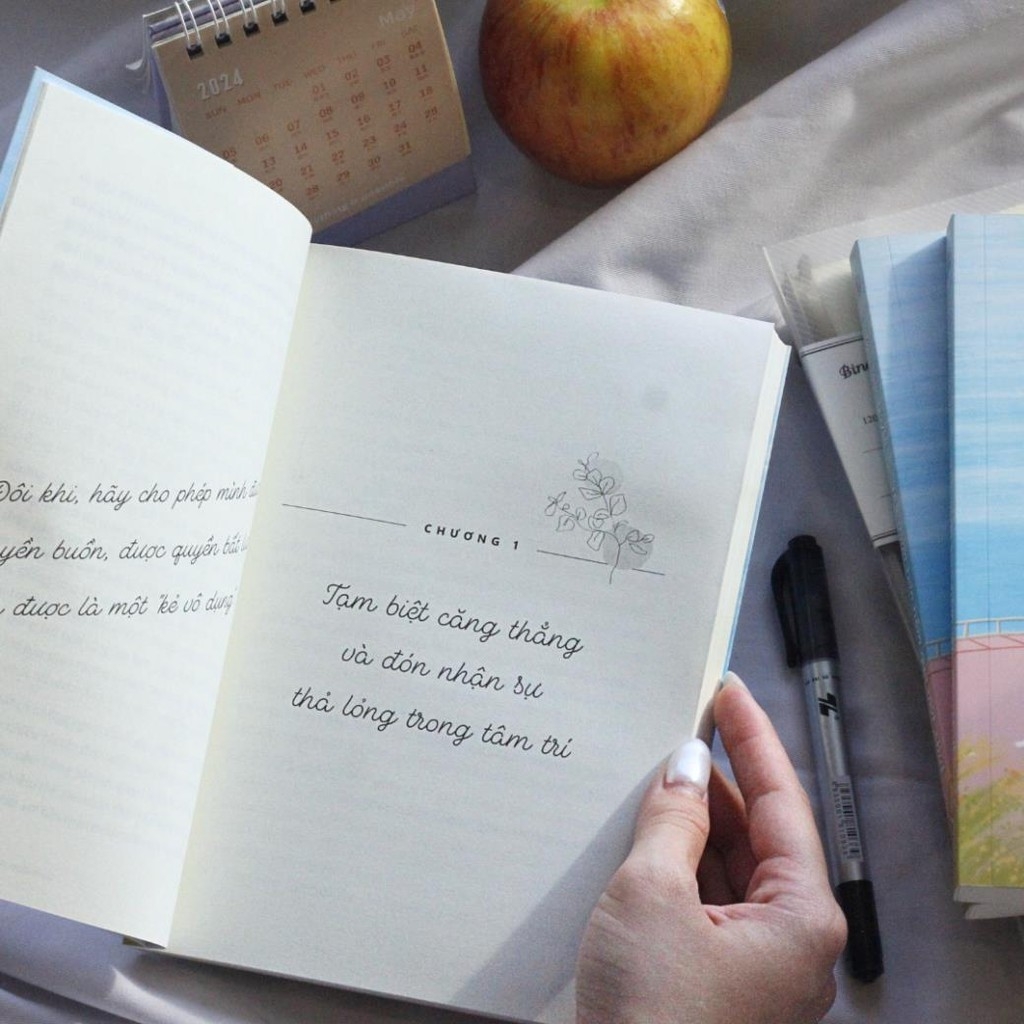 May
2024
SUN MON TUE WED THU FRI SAT
01 02 03 04
05 06 07 08 09 10 11
13 14 15 16 17 18
20 21 22 23 24
28 29 30 31
Đôi khi, hãy cho phép mình
buồn, được quyền bất
được là một "kẻ vô dụng"
CHƯƠNG 1
Tạm biệt căng thẳng
và đón nhận sự
thả lỏng trong tâm trí